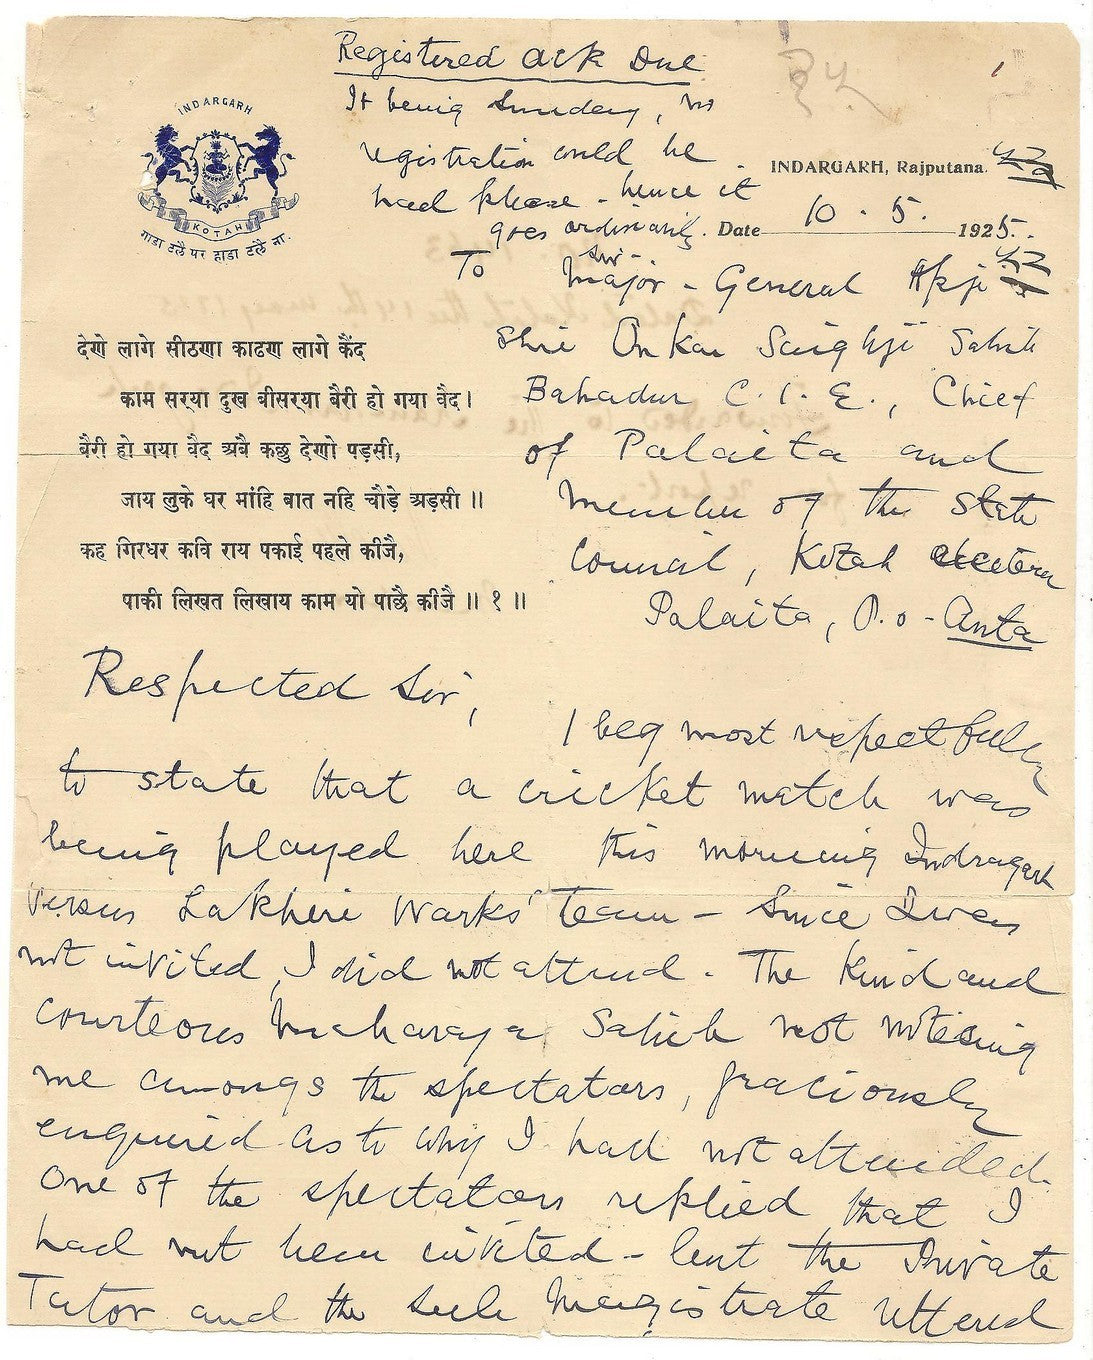 Registered Ack Due
It being Sunday, no
registration could be
had please - hence it
goes ordinarily.
INDARGARH
KOTAH
गाडा टलै पर हाडा टलै ना.
INDARGARH, Rajputana.
Date 10 . 5. 1925.
To Sir -
Major - General Apji
Shri Onkar Singhji Sahib
Bahadur C. I. E., Chief
of Palaita and
Member of the State
Council, Kotah etcetera
Palaita, P.o - Anta
देणे लागे सीठणा काढण लागे कैंद
काम सर्‌या दुख वीसर्‌या बैरी हो गया वैद।
बैरी हो गया वैद अबै कछु देणो पड़सी,
जाय लुके घर मांहि बात नहि चौड़े अड़सी ॥
कह गिरधर कवि राय पकाई पहले कीजै,
पाकी लिखत लिखाय काम यो पाछै कीजै ॥ १ ॥
Respected Sir,
I beg most respectfully
to state that a cricket match was
being played here this morning Indragarh
versus Lakheri Works' team - Since I was
not invited, I did not attend. The Kind and
courteous Maharaja Sahib not noticing
me amongs the spectators, graciously
enquired as to why I had not attended.
One of the spectators replied that I
had not been invited - but the Private
Tutor and the Sub Magistrate uttered